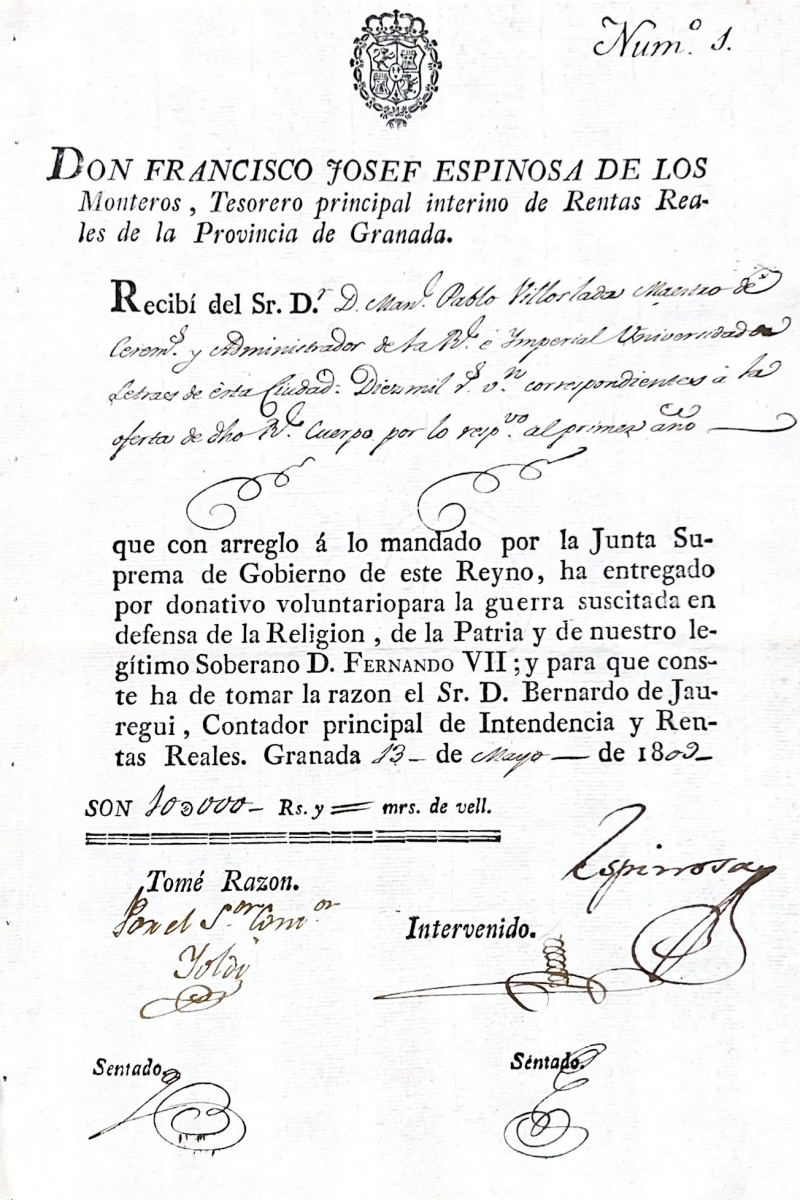 Num.º 1.
DON FRANCISCO JOSEF ESPINOSA DE LOS
Monteros, Tesorero principal interino de Rentas Rea-
les de la Provincia de Granada.
Recibí del Sr. D.r D. Man.l Pablo Villoslada Maestro de
Cerem.s y Administrador de la R.l é Imperial Universidad
Letras de esta Ciudad: Diez mil r.s v.n correspondientes à la
oferta de dho R.l Cuerpo por lo resp.vo al primer año
que con arreglo á lo mandado por la Junta Su-
prema de Gobierno de este Reyno, ha entregado
por donativo voluntariopara la guerra suscitada en
defensa de la Religion, de la Patria y de nuestro le-
gítimo Soberano D. FERNANDO VII; y para que cons-
te ha de tomar la razon el Sr. D. Bernardo de Jau-
regui, Contador principal de Intendencia y Ren-
tas Reales. Granada 13 de Mayo de 1809
SON 10000 Rs. y = mrs. de vell.
Espinosa
Tomé Razon.
Por el S.or Con.or
Intervenido.
Sentado.
Sentado.